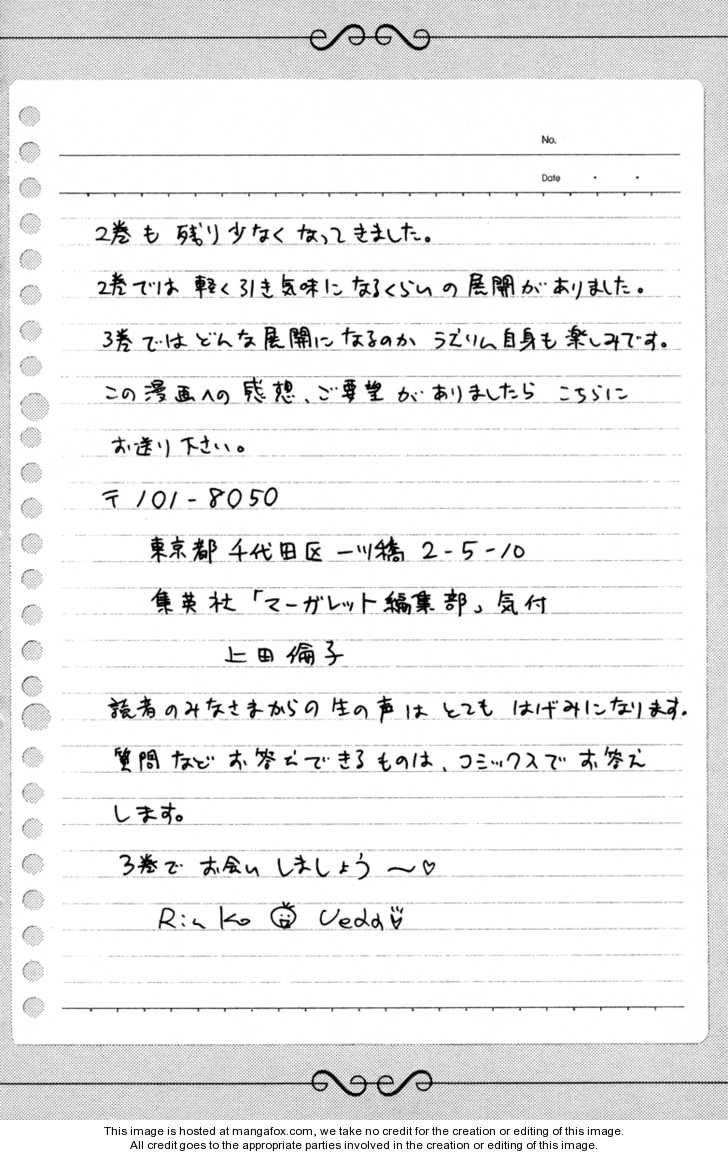 No.
Date
2巻も 残り少なく なってきました。
2巻では 軽く引き気味に なるくらいの 展開がありました。
3巻ではどんな展開に なるのか ラズリム自身も 楽しみです。
この漫画への 感想、ご要望 がありましたら こちらに
お送り下さい。
〒101-8050
東京都 千代田区 一ツ橋 2-5-10
集英社「マーガレット編集部」気付
上田倫子
読者のみなさまからの 生の声は とても はげみになります。
質問など お答えできるものは、コミックスで お答え
します。
3巻で お会い しましょう ～♡
Rinko Ueda
This image is hosted at mangafox.com, we take no credit for the creation or editing of this image.
All credit goes to the appropriate parties involved in the creation or editing of this image.